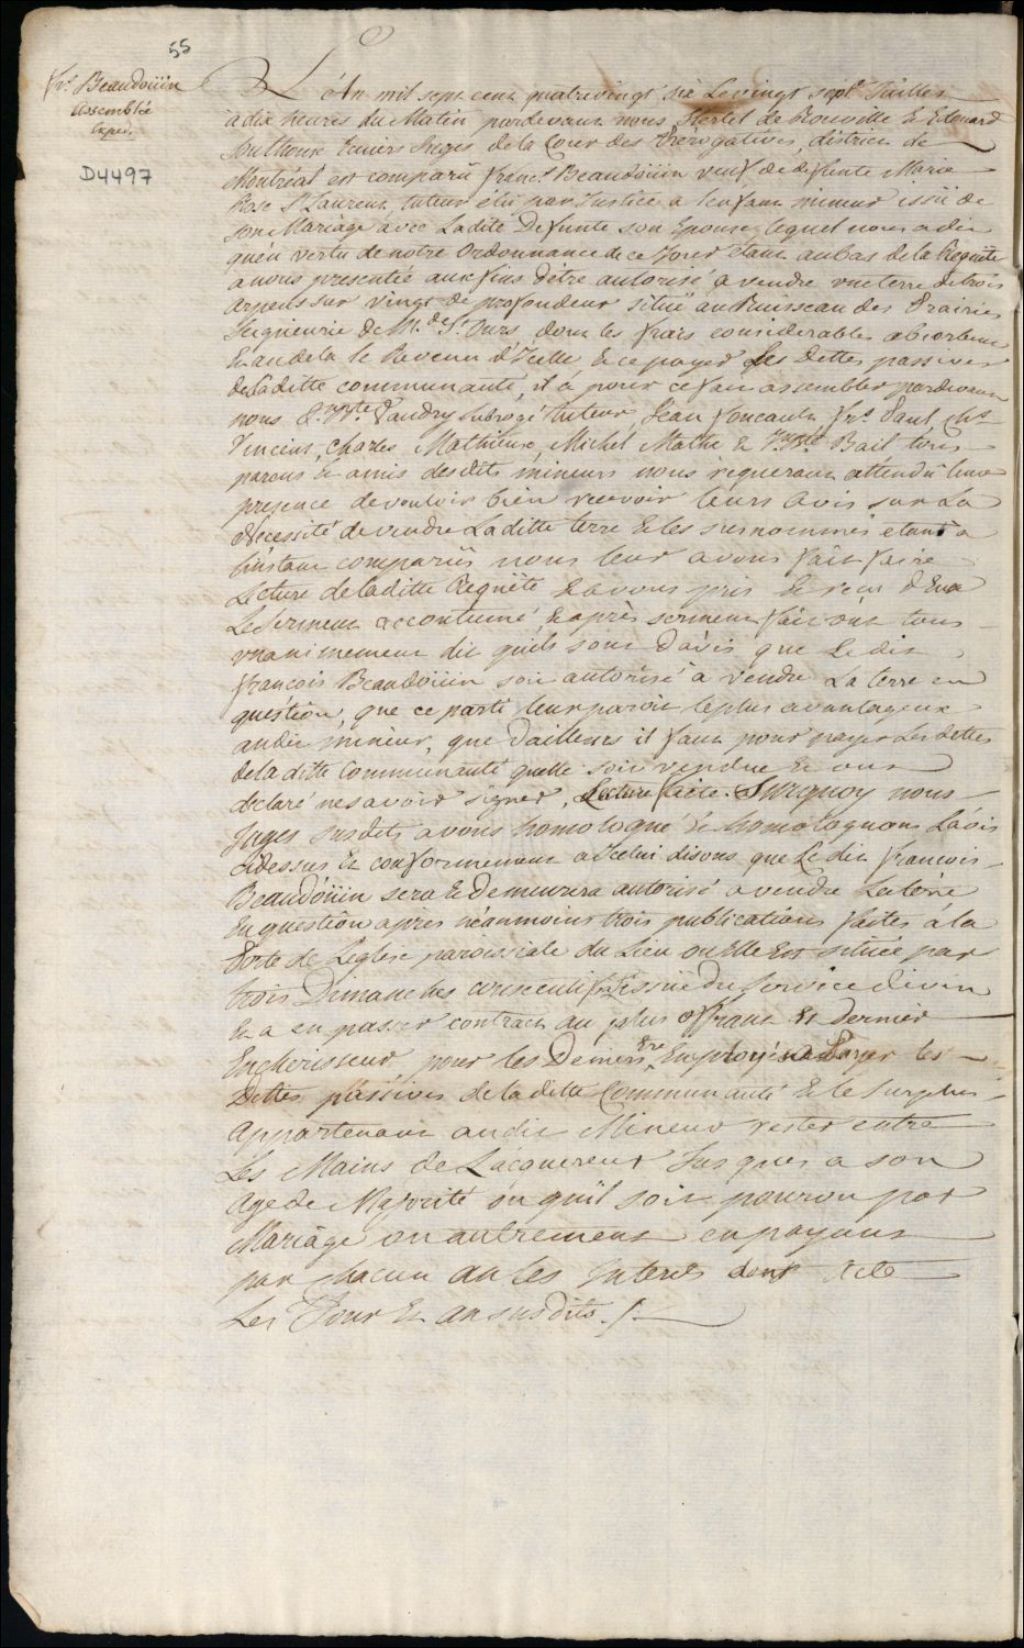 55
frs Beaudoüin
Assemblée
Exped.
D4497
L'An mil sept cent quatrevingt six Le vingt sept Juillet
à dix heures du Matin pardevant nous Hertel de Rouville & Edouard
Southouse Ecuiers Juges de la Cour des Prérogatives, district de
Montréal est comparû franc.s Beaudoüin veuf de deffunte Marie
Rose St Laurent, tuteur élû par Justice a l'enfant mineur issüe de
son Mariage avec Ladite Defunte son Epouse, lequel nous a dit
qu'en vertu de notre Ordonnance de ce Jour étant au bas de la Requête
a nous presentée aux fins d'être autorisé a vendre une terre de trois
arpents sur vingt de profondeur situé au Ruisseau des Prairies
Seigneurie de M.de St Ours, dont les frais considerables absorbent
Et audela le Revenu d'Icelle, & ce payer les Dettes passives
de Laditte communauté, il à pour ce fait assembler pardevant
nous Bte Vaudry Subrogé tuteur, Jean foucault, frs Paul, Chs
Vincent, Charles Mathieux, Michel Mathe & Bte Bail tous
parens & amis desdits mineurs nous requerant attendu leur
presence de vouloir bien recevoir leurs Avis sur La
Necessité de vendre Laditte terre & les susnommés etant a
l'instant comparûs nous leur avons fait faire
Lecture de laditte Requête & avons pris & reçu d'Eux
Le serment accoutumé, & après serment fait ont tous
unanimement dit quils sont D'avis que Le dit
françois Beaudoüin soit autorisé à vendre La terre en
question, que ce parti leur paroit le plus avantageux
audit mineur, que D'ailleurs il faut pour payer Les dettes
de la ditte Communauté quelle soit vendue & ont
declaré ne savoir signer, Lecture faite. Surquoy nous
Juges susdits avons homologué & homologuons L'avis
cidessus Et conformement a Icelui disons que Le dit françois
Beaudoüin sera & Demeurera autorisé a vendre La terre
En question après néanmoins trois publications faites à la
Porte de L'eglise paroissiale du Lieu ou Elle Est située par
trois Dimanches consecutifs issüe Du Service divin
Et a en passer contract au plus offrant Et Dernier
Encherisseur, pour les Deniers Etre Employés a Payer les
Dettes passives de laditte Communauté & le Surplus
Appartenant audit Mineur rester entre
Les Mains de L'acquereur Jusques a son
Age de Majorité ou qu'il soit pourvu par
Mariage ou autrement en payant
par chacun an les Interets dont Acte
Les Jour Et an susdits ./.